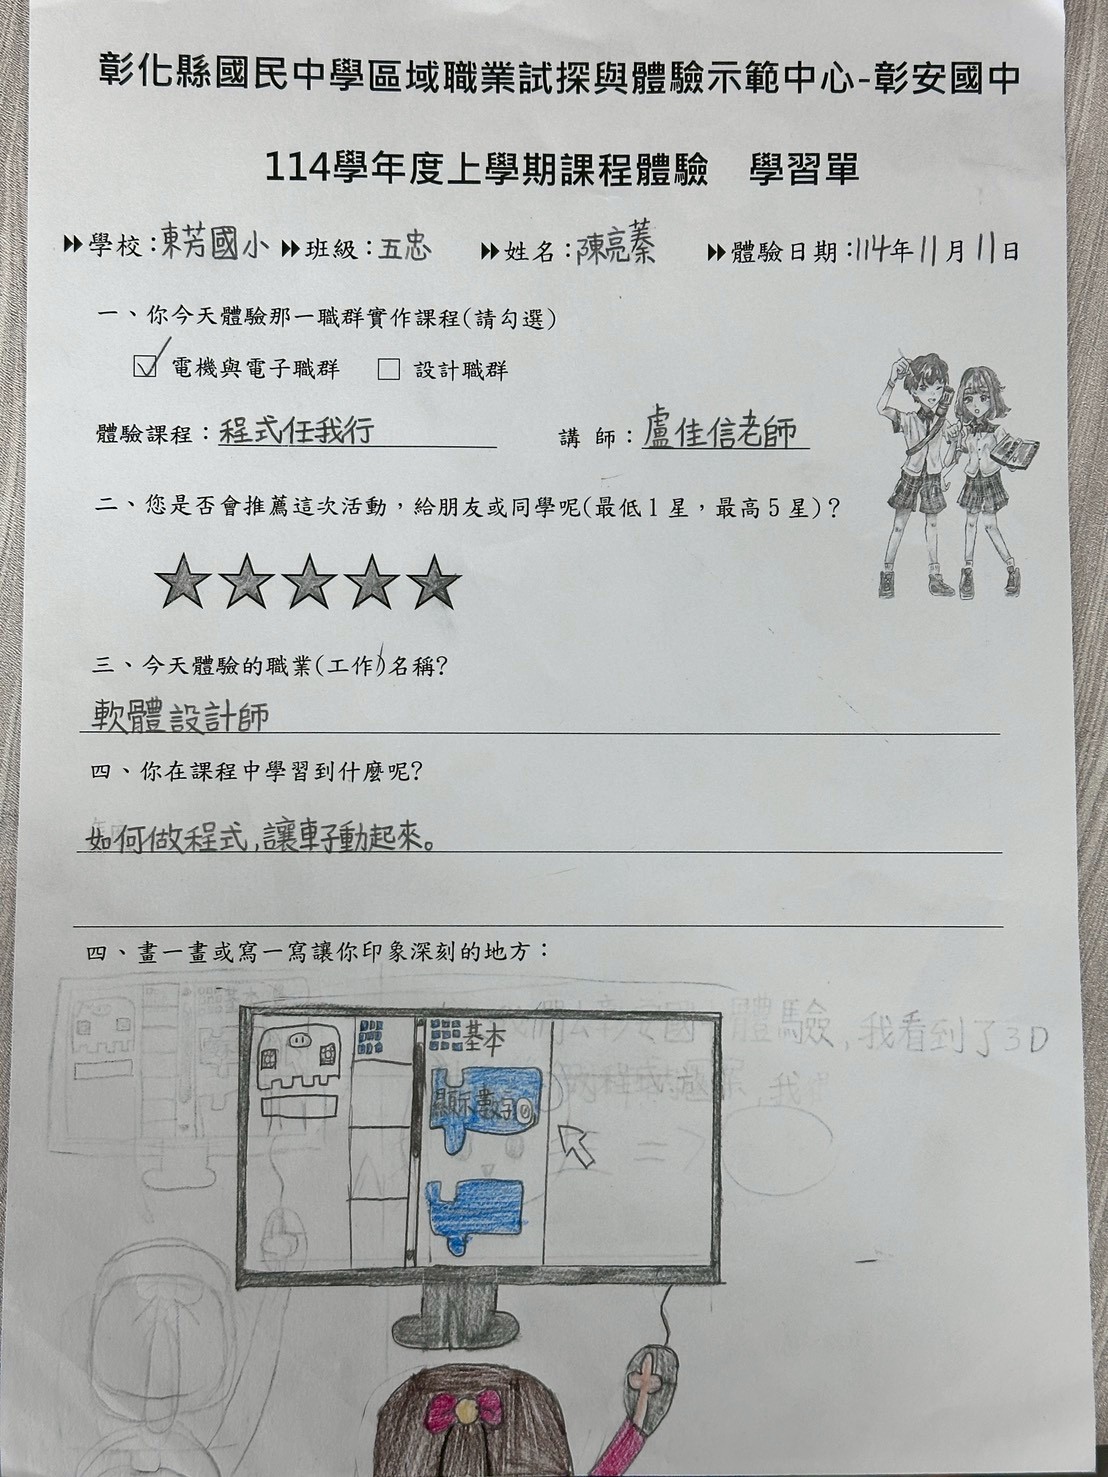 彰化縣國民中學區域職業試探與體驗示範中心-彰安國中
114學年度上學期課程體驗　學習單
學校：東芳國小 班級：五忠 姓名：陳亮蓁 體驗日期：114年11月11日
一、你今天體驗那一職群實作課程(請勾選)
☑ 電機與電子職群 □ 設計職群
體驗課程：程式任我行 講 師：盧佳信老師
二、您是否會推薦這次活動，給朋友或同學呢(最低1星，最高5星)？
三、今天體驗的職業(工作)名稱?
軟體設計師
四、你在課程中學習到什麼呢?
如何做程式,讓車子動起來。
四、畫一畫或寫一寫讓你印象深刻的地方：
體驗,我看到了3D
基本
顯示數字0